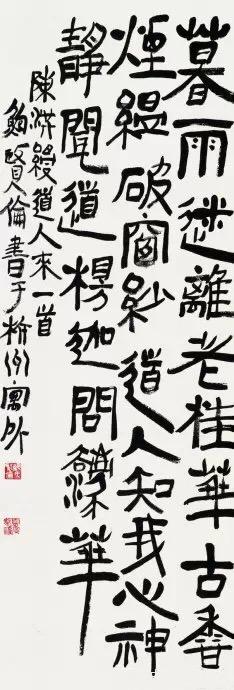 暮雨迷離老桂華古香
煙縕破窗紗道人知我心神
靜聞道楞迦問華
陳洪綬道人來一首
鮑賢倫書于杭州寓所